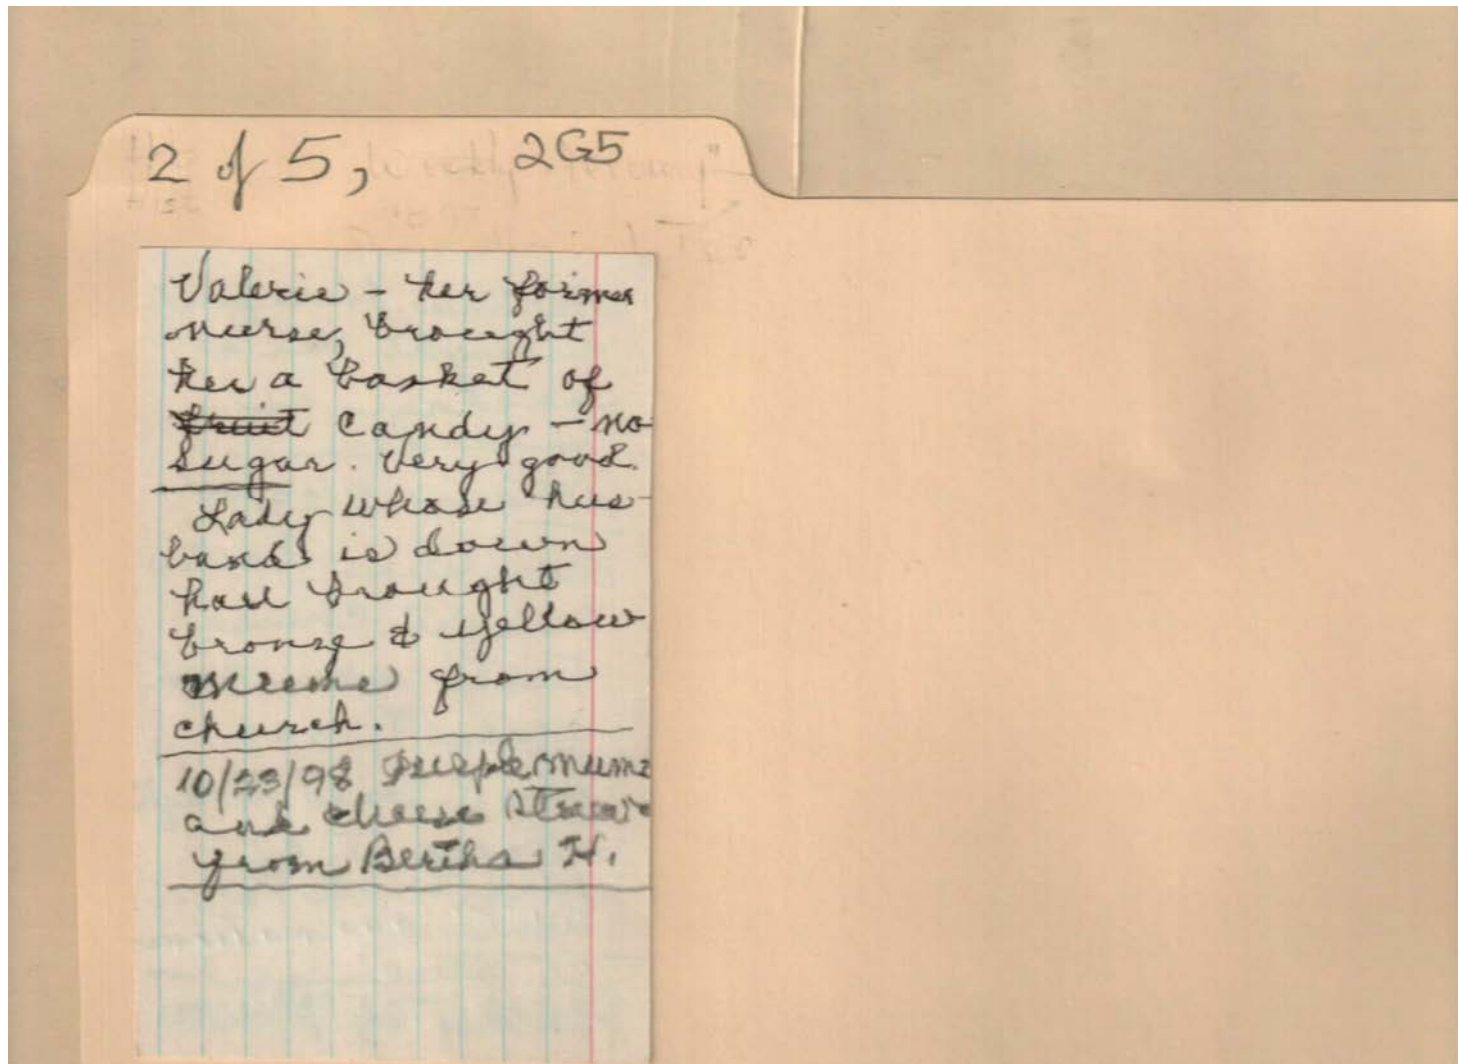 2 of 5, 2G5
Valerie - her former
nurse, brought
her a basket of
fruit candy - no
sugar. Very good.
Lady whose hus-
band is down
hall brought
bronze & yellow
mums from
church.
10/23/98 Purple mums
and cheese straws
from Bertha H.